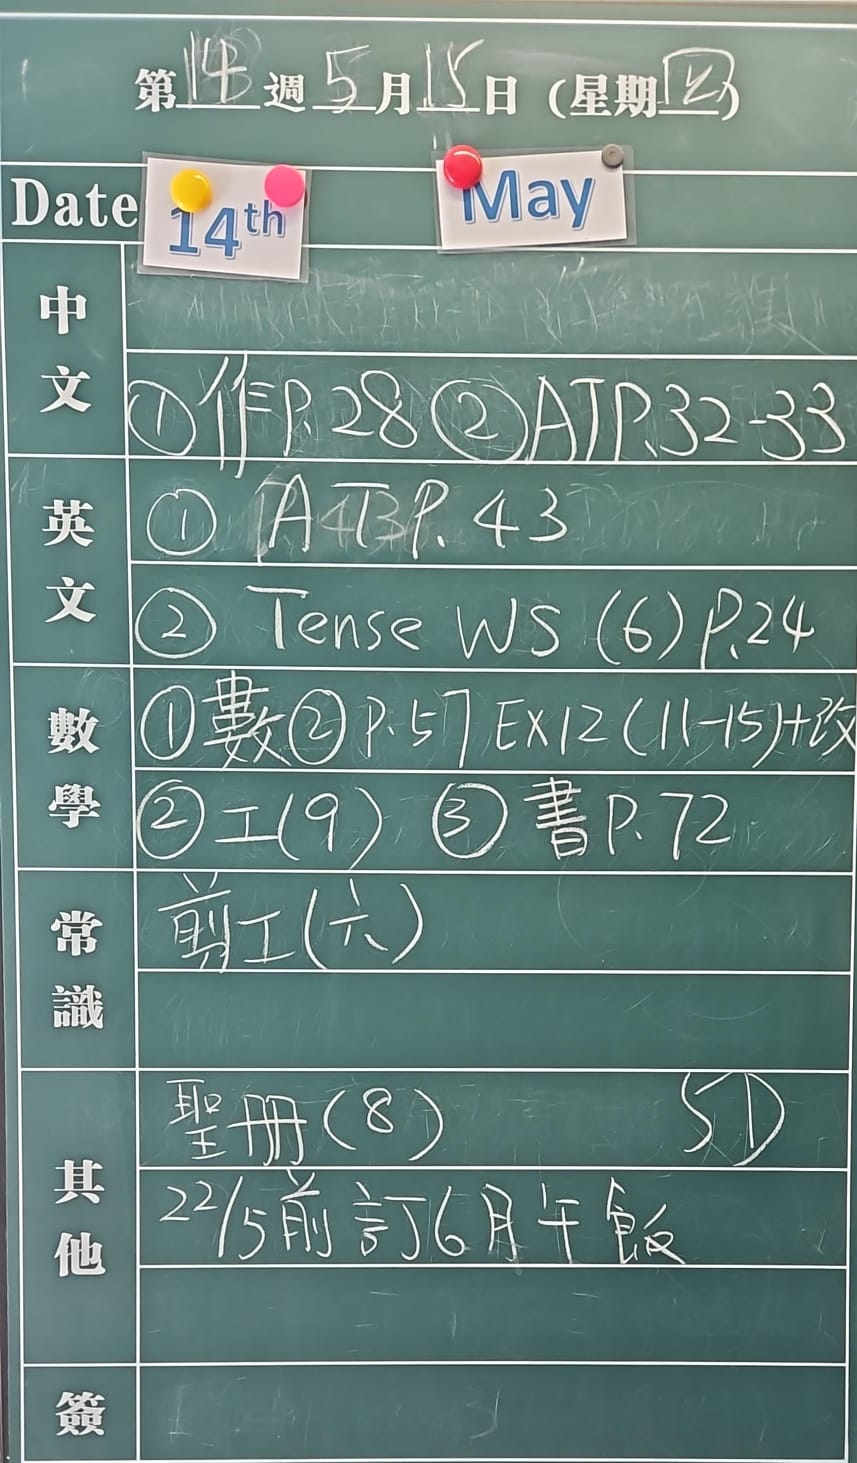 第14週5月15日(星期四)
Date 14th May
中文
①作P.28 ②ATP.32-33
英文
① ATP.43
② Tense WS (6) P.24
數學
①數②P.57 EX12(11-15)+改
②工(9) ③書P.72
常識
剪工(六)
其他
聖冊(8) 5D
22/5前訂6月午飯
簽